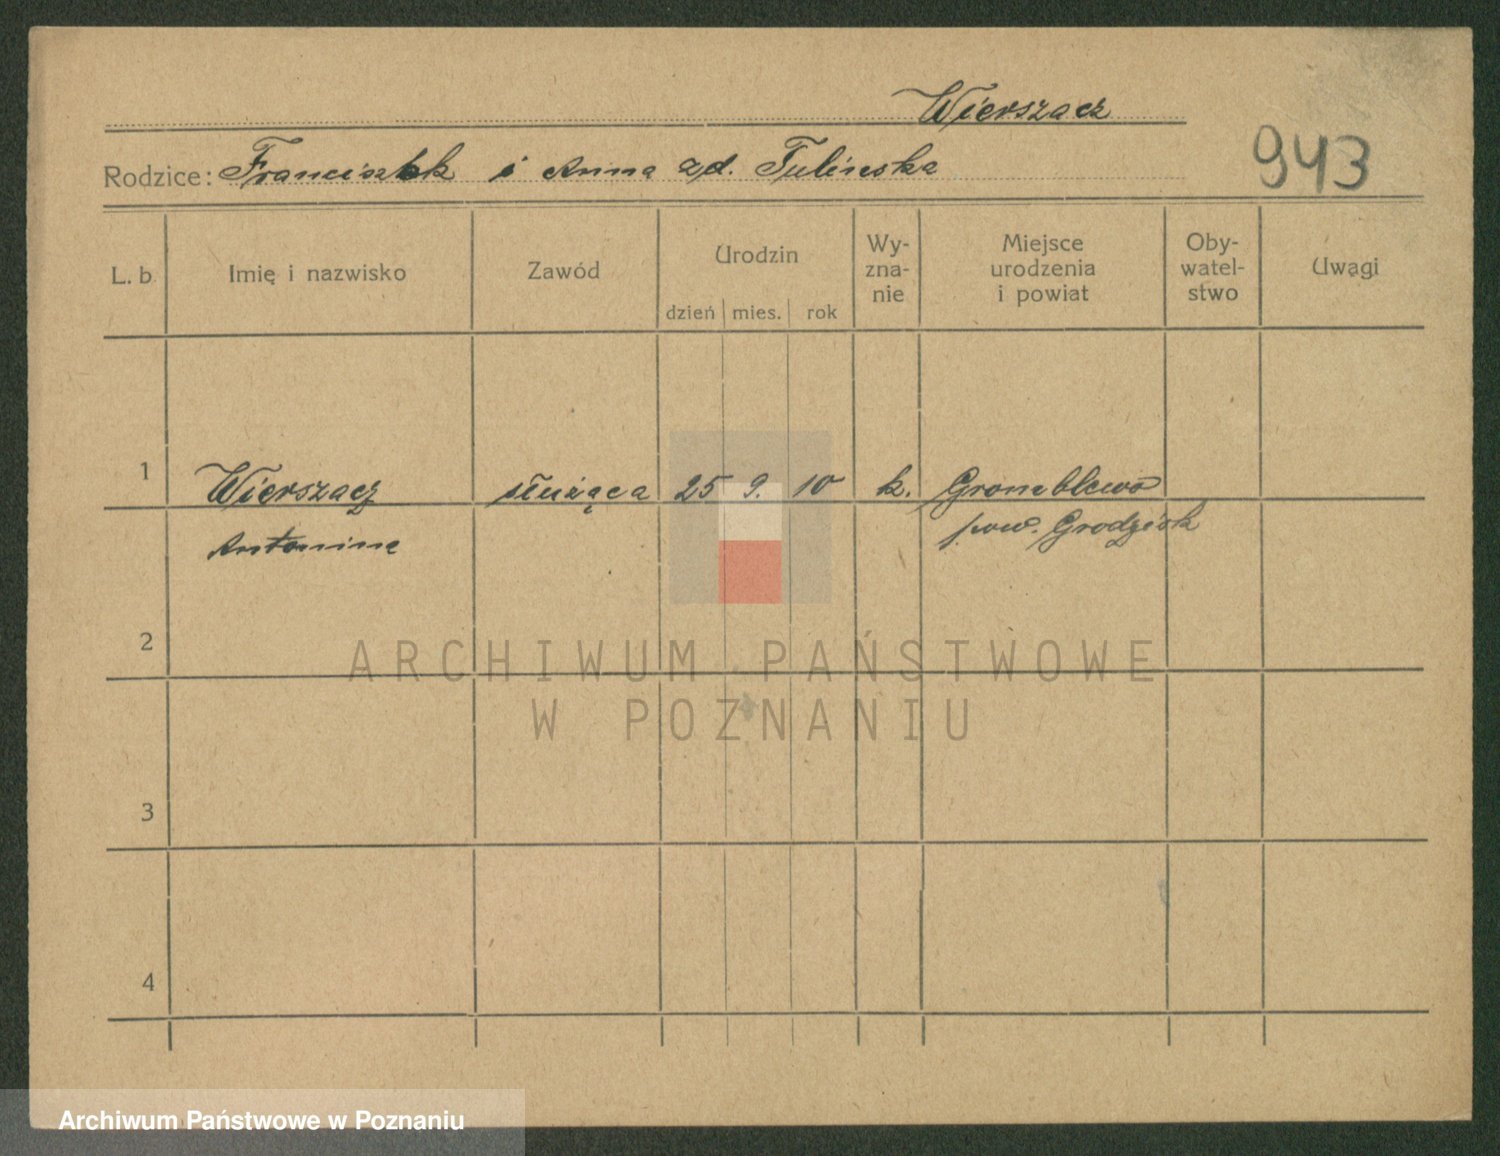 Wierszacz
943
Rodzice: Franciszek i Anna zd. Tulińska
L. b. Imię i nazwisko Zawód Urodzin dzień mies. rok Wy-zna-nie Miejsce urodzenia i powiat Oby-watel-stwo Uwagi
1 Wierszacz służąca 25 9. 10 k. Gronublewo
Antonina pow. Grodzisk
2
ARCHIWUM PAŃSTWOWE
W POZNANIU
3
4
Archiwum Państwowe w Poznaniu